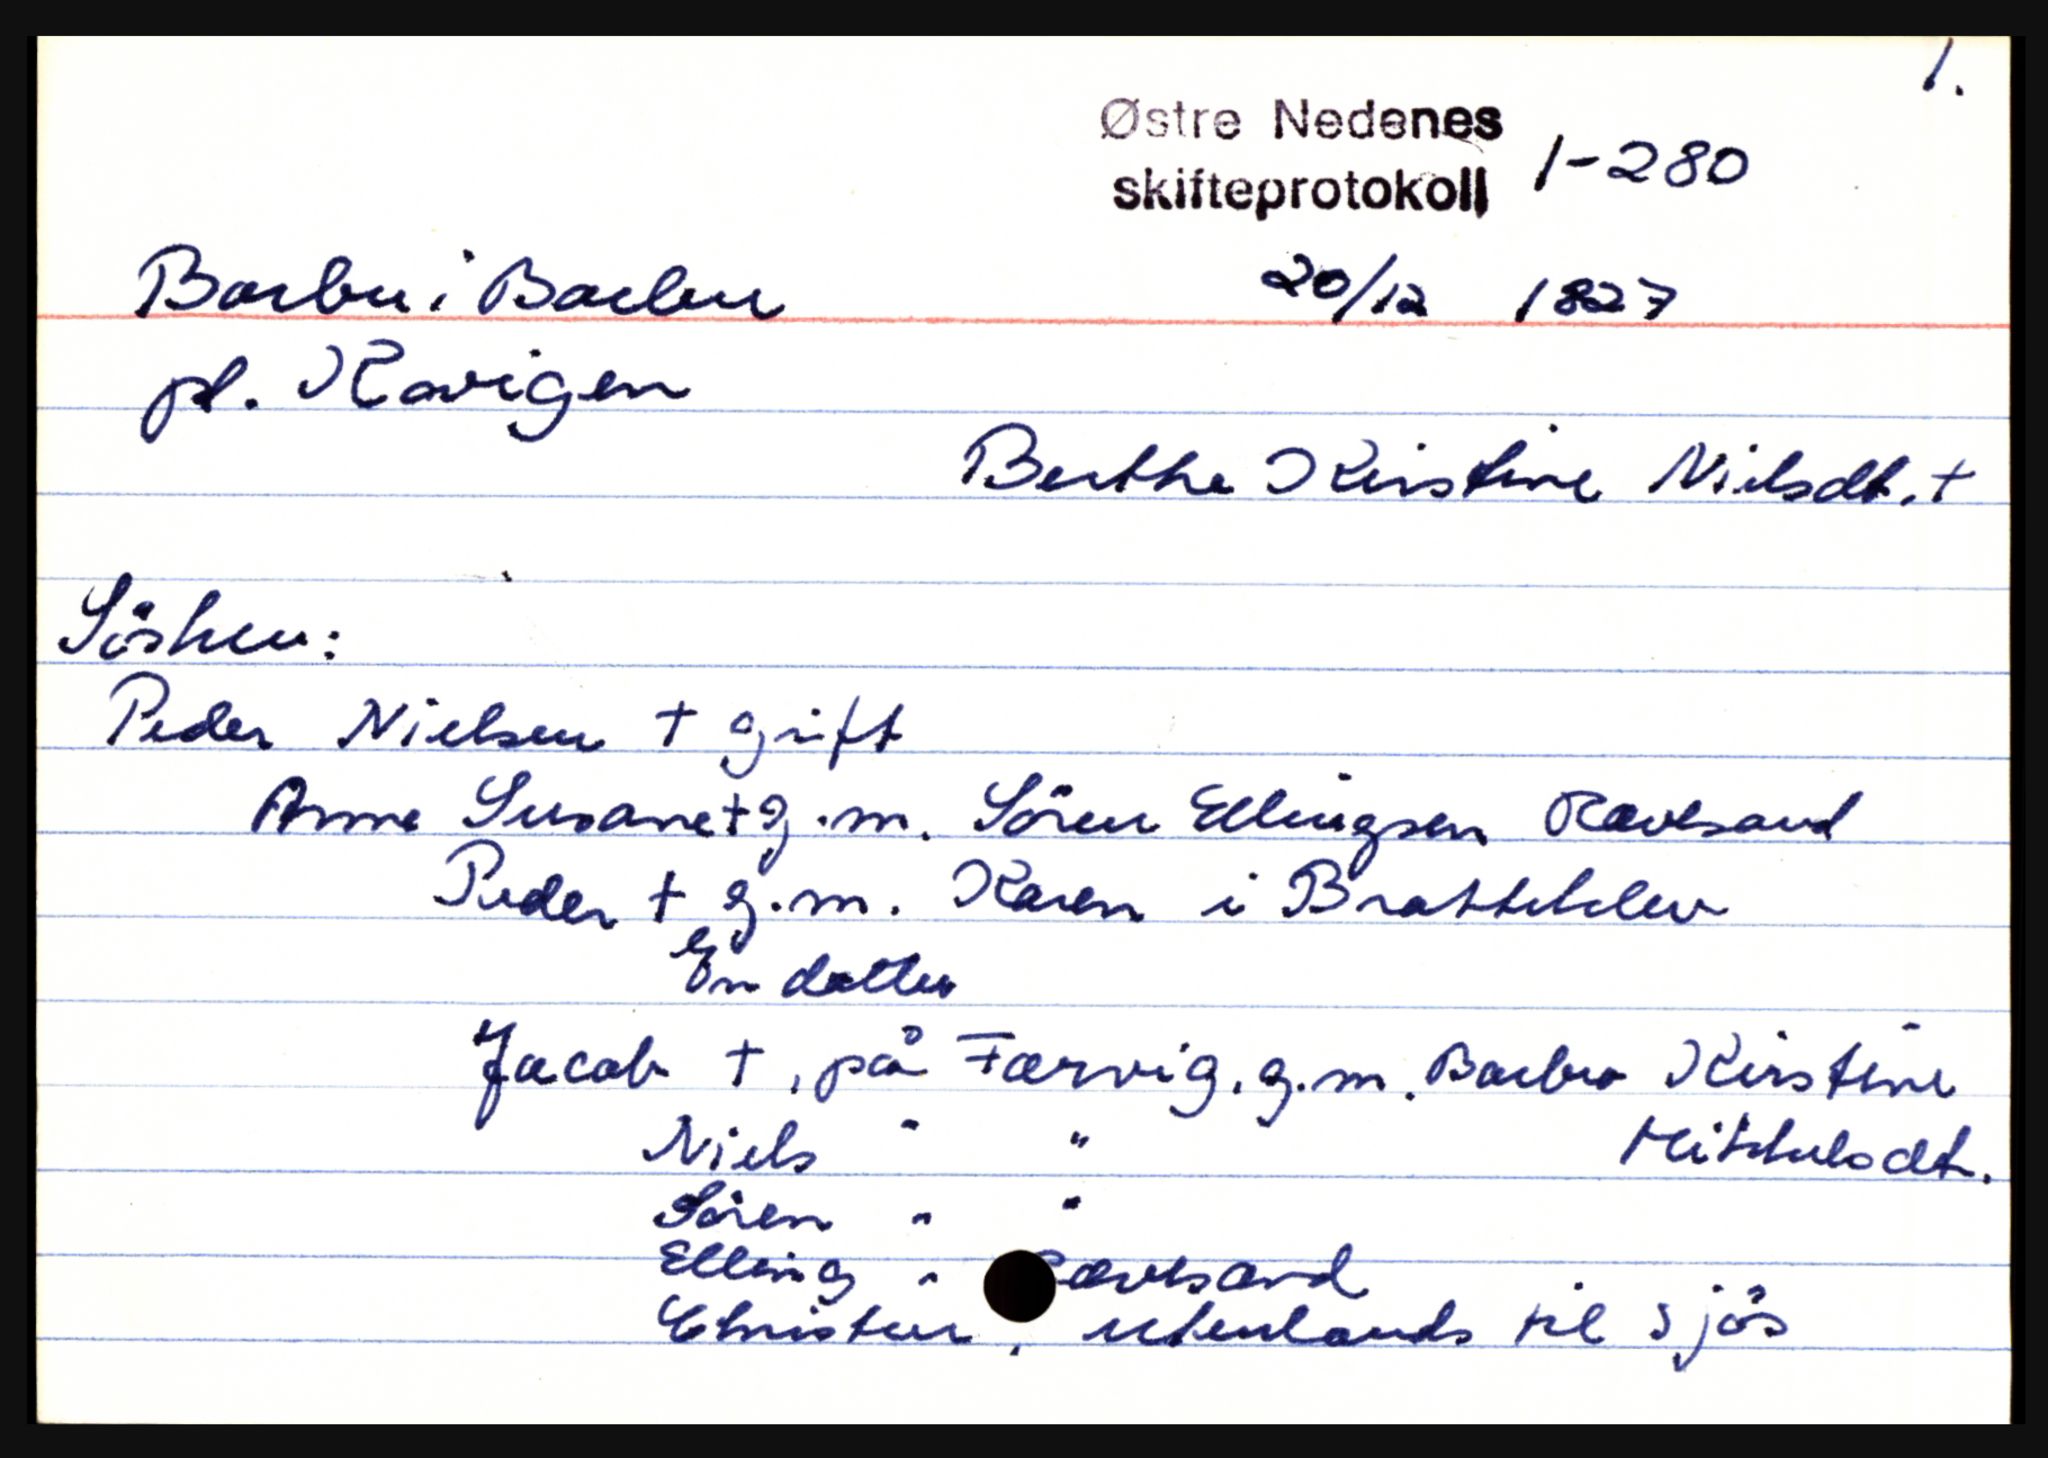 1.
Østre Nedenes
skifteprotokoll 1-280
Barbu i Barbu 20/12 1827
pl. Kavigen
Berthe Kirstine Nielsdt. +
Søsken:
Peder Nielsen + gift
Anne Susane + g.m. Sören Ellingsen Rævesand
Peder + g.m. Karen i Brattekleiv
En datter
Jacob +, på Færvig, g.m. Barbro Kirstine
Niels " " Mikkelsdt.
Sören " "
Elling " Rævesand
Christen, utenlands til sjös